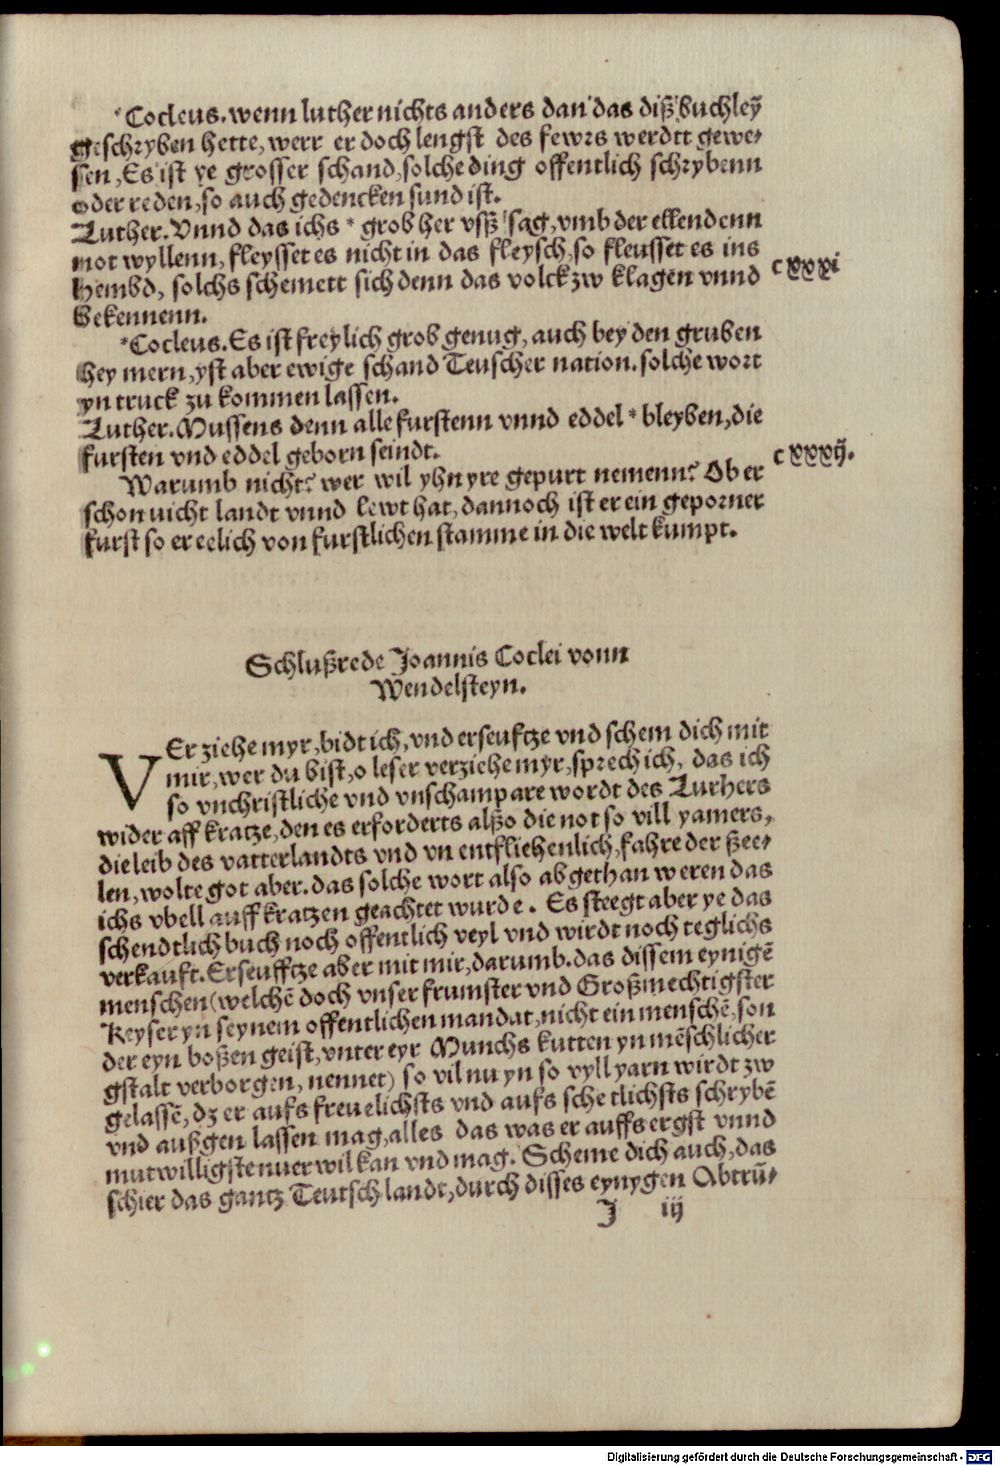 *Cocleus. wenn luther nichts anders dan das diß buchleȳ
geschryben hette, werr er doch lengst des fewrs werdtt gewe⸗
sen, Es ist ye grosser schand, solche ding offentlich schrybenn
oder reden, so auch gedencken sund ist.
Luther. Vnnd das ichs * grob her vsß sag, vmb der ellendenn
not wyllenn, fleysset es nicht in das fleysch, so fleusset es ins
hembd, solchs schemett sich denn das volck zw klagen vnnd
bekennenn.
cxxxi
*Cocleus. Es ist freylich grob genug, auch bey den gruben
hey mern, yst aber ewige schand Teuscher nation. solche wort
yn truck zu kommen lassen.
Luther. Mussens denn alle furstenn vnnd eddel * bleyben, die
fursten vnd eddel geborn seindt.
cxxxij.
Warumb nicht? wer wil yhn yre gepurt nemenn? Ob er
schon nicht landt vnnd lewt hat, dannoch ist er ein geporner
furst so er eelich von furstlichen stamme in die welt kumpt.
Schlußrede Joannis Coclei vonn
Wendelsteyn.
VEr ziehe myr, bidt ich, vnd erseuftze vnd schem dich mit
mir, wer du bist, o leser verziehe myr, sprech ich, das ich
so vnchristliche vnd vnschampare wordt des Luthers
wider aff kratze, den es erforderts alßo die not so vill yamers,
die leib des vatterlandts vnd vn entfliehenlich, fahre der ßee⸗
len, wolte got aber. das solche wort also abgethan weren das
ichs vbell auff kratzen geachtet wurde. Es steegt aber ye das
schendtlich buch noch offentlich veyl vnd wirdt noch teglichs
verkauft. Erseufftze aber mit mir, darumb. das dissem eynigē
menschen (welchē doch vnser frumster vnd Großmechtigster
Keyser yn seynem offentlichen mandat, nicht ein menschē, son
der eyn boßen geist, vnter eyr Munchs kutten yn mēschlicher
gstalt verborgen, nennet) so vil nu yn so vyll yarn wirdt zw
gelassē, dz er aufs freuelichsts vnd aufs schetlichsts schrybē
vnd außgen lassen mag, alles das was er auffs ergst vnnd
mutwilligsten uer wil kan vnd mag. Scheme dich auch, das
schier das gantz Teutsch landt, durch disses eynygen Abtrū⸗
J iij
Digitalisierung gefördert durch die Deutsche Forschungsgemeinschaft - DFG